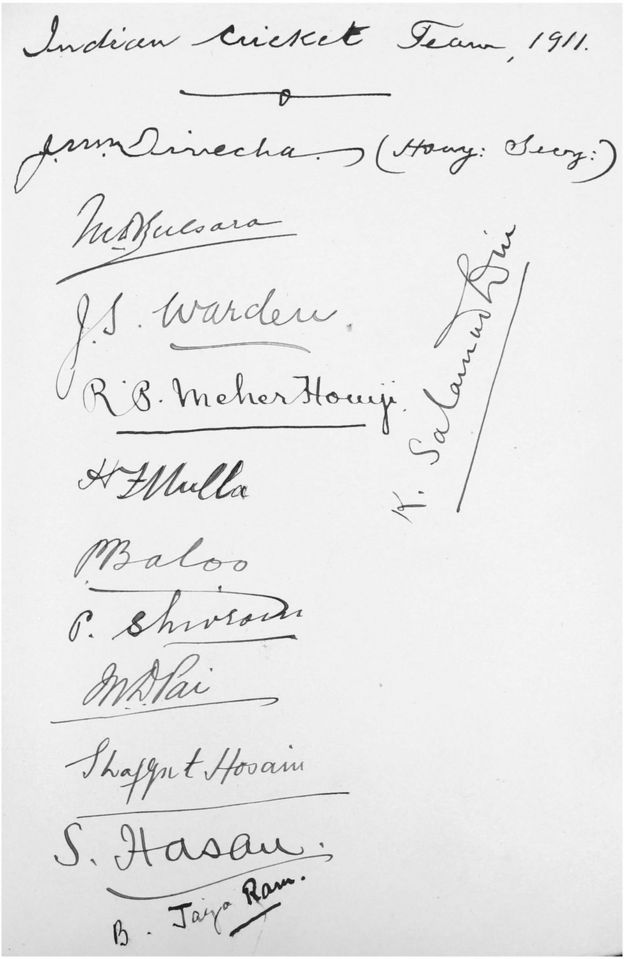 Indian Cricket Team, 1911.
J.M. Divecha. (Hony: Secy:)
M.D. Bulsara
J.S. Warden.
R.P. Meher Homji.
K. Salamud Din
H F Mulla
P Baloo
P. Shivram
M.D. Pai
Shafqut Hosain
S. Hasan.
B. Jaya Ram.